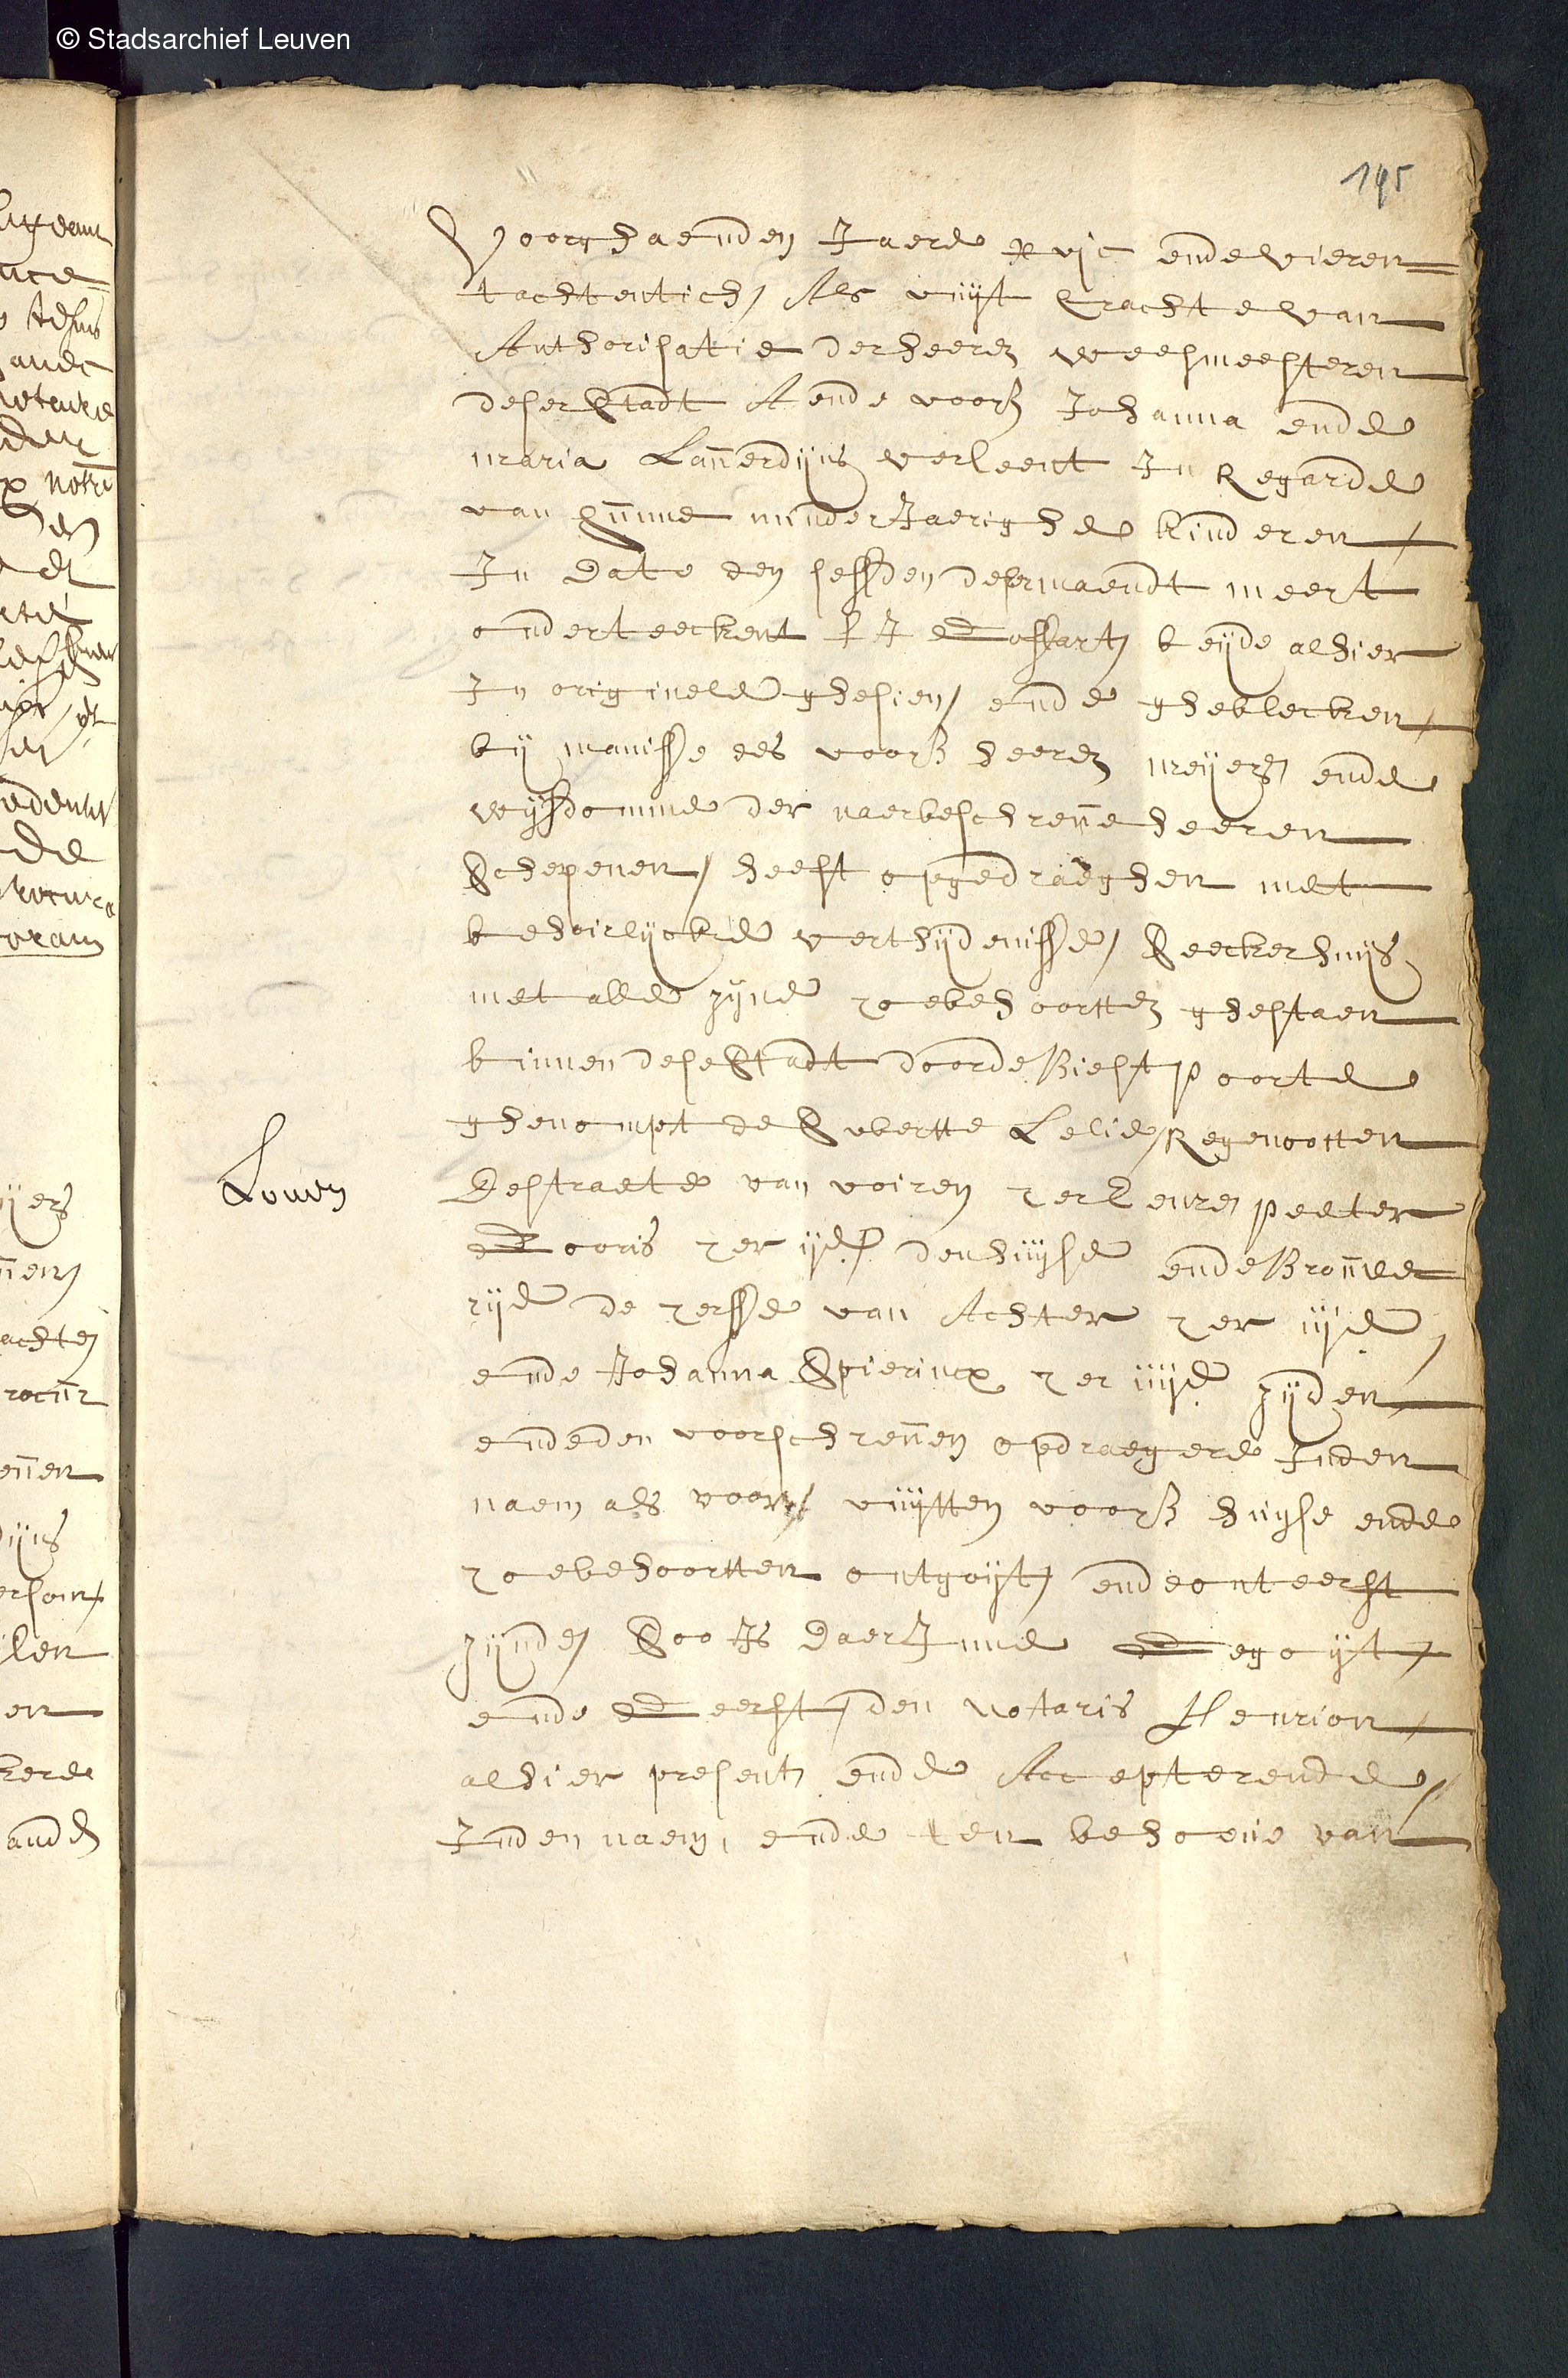 © Stadsarchief Leuven
195
Voorghaenden Jaere xvjc ende vieren
tachtentich, Als vuijt Crachte van
Authorisatie der heeren weesmeesteren
deser Stadt Aende voors Johanna ende
maria Lauerdijns verleent In Regarde
van hunne minderJaerighe kinderen,
In date den sessden deser maendt meert
onderteeckent beijde alhier
In originele ghesien, ende ghebleken,
bij manisse des voors heeren meijers ende
wijsdomme der naerbeschreue heeren
Schepenen, heeft opgedraeghen met
behoirlijcke verthijdenisse, Seecker huijs
met alle zijne toebehoortten ghestaen
binnen dese Stadt doorde Biestpoorte
ghenompt de Lelie, Regenootten
Louen
Destraete van voiren ter Ire peeter
ooris ter ije den huijse ende Brouwe
rije de van Achter ter iije,
ende Johanna Spierincx ter iiije zijden,
ende den voorschreuen opdraegere Inden
naem als voor, vuijtten voors huijse ende
toebehoortten ontgoijt, ende onteerft
zijnde, Soo Is daer Inne gegoijt,
ende geerft, den notaris Henrion,
alhier present ende Accepterende,
Inden naem, ende ten behoeue van